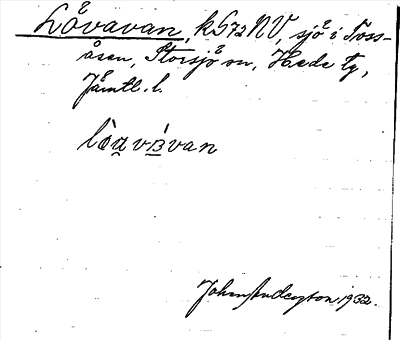 Låvavan, k 572 NV, sjö i Toss-
åsen, Storsjö sn, Hede tg,
Jämtl. l.
Johan Anderston 1932.